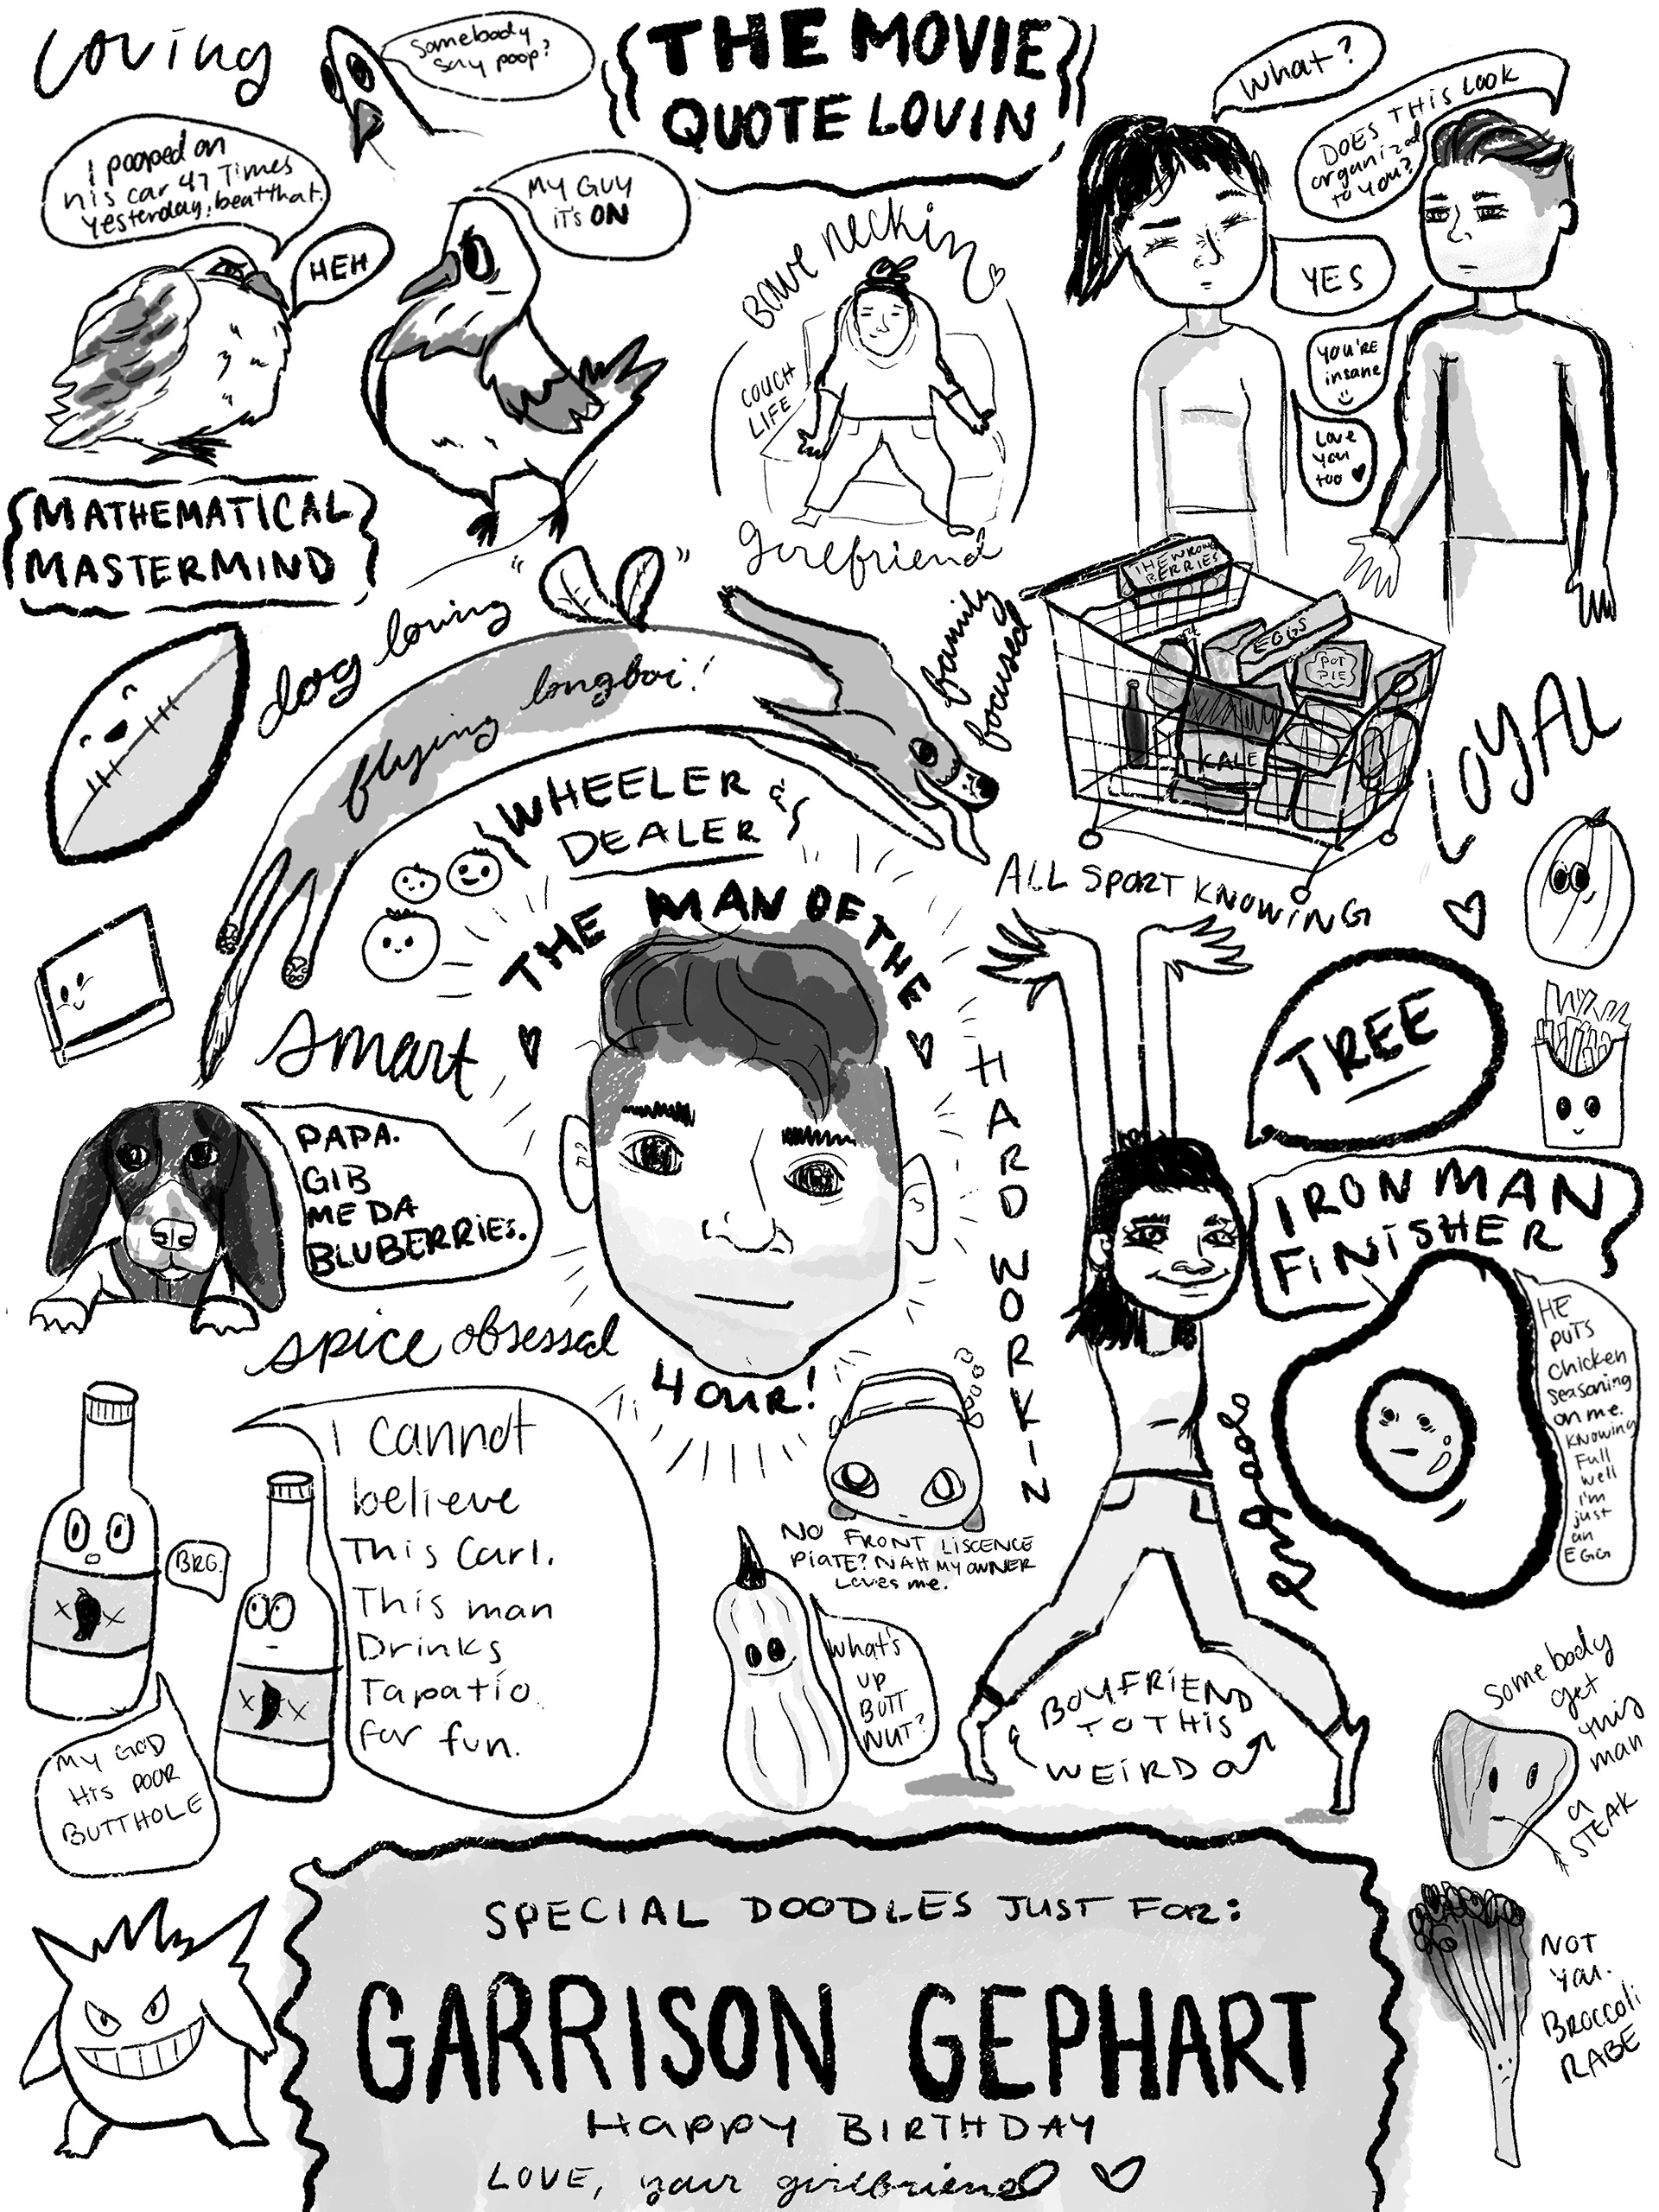 Loving
Somebody
say poop?
THE MOVIE
QUOTE LOVIN
What?
DOES THIS LOOK
organized
to you?
I pooped on
his car 47 Times
yesterday, beat that.
HEH
MY GUY
it's ON
YES
YOU'RE
insane
Love
you
too
COUCH
LIFE
girlfriend
MATHEMATICAL
MASTERMIND
THE WRONG
BERRIES
EGGS
POT
PIE
KALE
dog loving
flying longboi!
family
focused
LOYAL
WHEELER &
DEALER
ALL SPORT KNOWING
THE MAN OF THE
HOUR!
TREE
smart
HARD WORKIN
PAPA.
GIB
ME DA
BLUBERRIES.
IRONMAN
FINISHER
HE
PUTS
chicken
seasoning
on me.
KNOWING
Full
well
i'm
just
an
EGG
spice obsessed
I cannot
believe
This Carl.
This man
Drinks
Tapatío
for fun.
BRG.
MY GOD
His POOR
BUTTHOLE
NO FRONT LISCENCE
PlATE? NAH MY OWNER
Loves me.
What's
UP
BUTT
NUT?
BOYFRIEND
TO THIS
WEIRDO
Somebody
get
this
man
a
STEAK
NOT
You.
BROCCOLI
RABE
SPECIAL DOODLES JUST FOR:
GARRISON GEPHART
Happy BIRTHDAY
LOVE, your girlfriend